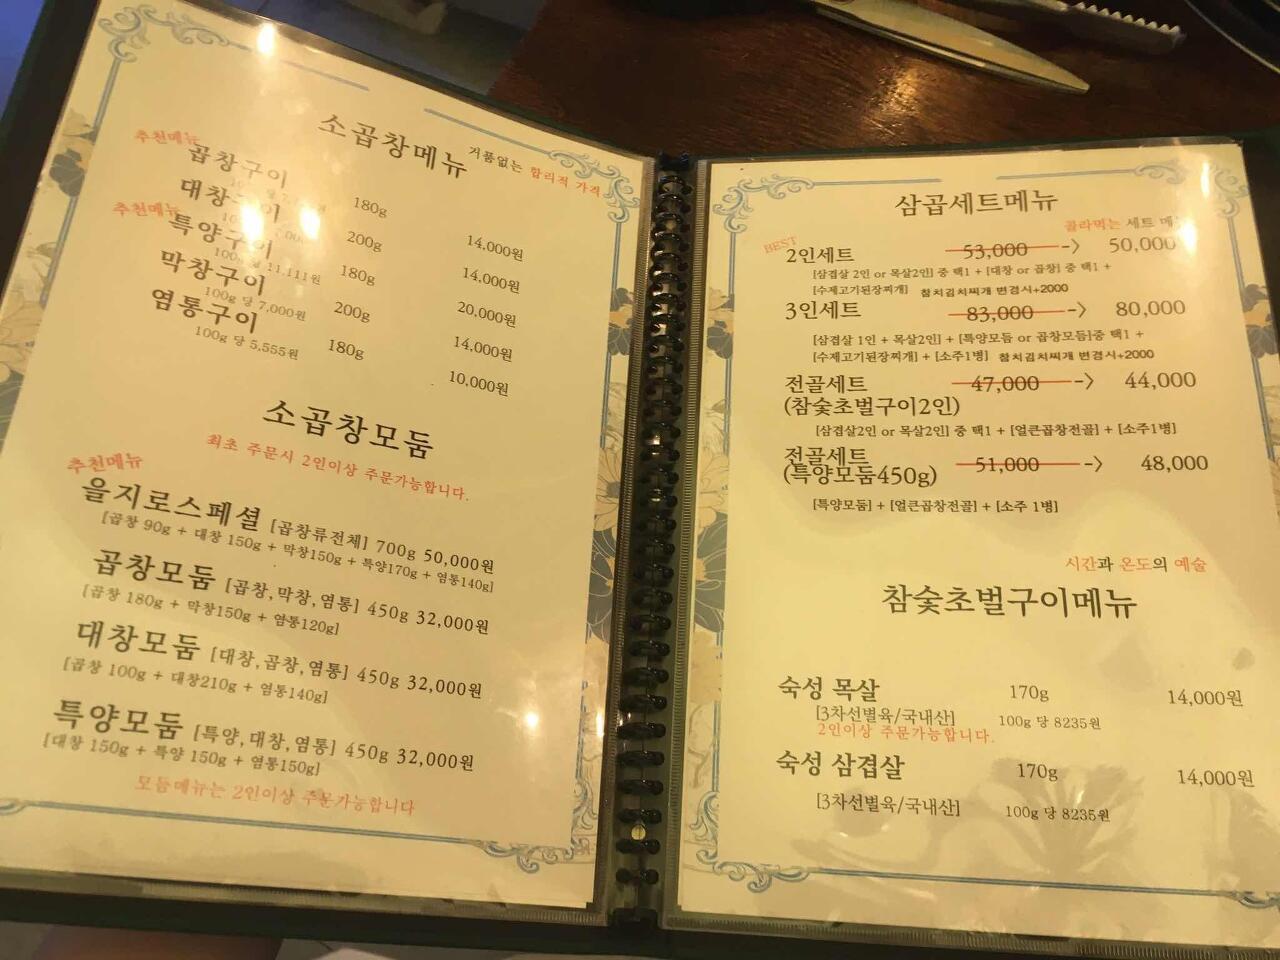 소곱창메뉴
거품없는 합리적 가격
추천메뉴
곱창구이 180g 14,000원
대창구이 200g 14,000원
추천메뉴
특양구이 180g 20,000원
100g 당 11,111원
막창구이 200g 14,000원
100g 당 7,000원
염통구이 180g 10,000원
100g 당 5,555원
소곱창모둠
최초 주문시 2인이상 주문가능합니다.
추천메뉴
을지로스페셜 [곱창류전체] 700g 50,000원
[곱창 90g + 대창 150g + 막창150g + 특양170g + 염통140g]
곱창모둠 [곱창,막창,염통] 450g 32,000원
[곱창 180g + 막창150g + 염통120g]
대창모둠 [대창,곱창,염통] 450g 32,000원
[곱창 100g + 대창210g + 염통140g]
특양모둠 [특양,대창,염통] 450g 32,000원
[대창 150g + 특양 150g + 염통150g]
모듬메뉴는 2인이상 주문가능합니다
삼곱세트메뉴
골라먹는 세트 메뉴
BEST
2인세트 53,000 -> 50,000
[삼겹살 2인 or 목살2인] 중 택1 + [대창 or 곱창] 중 택1 +
[수제고기된장찌개] 참치김치찌개 변경시+2000
3인세트 83,000 -> 80,000
[삼겹살 1인 + 목살2인] + [특양모듬 or 곱창모듬]중 택1 +
[수제고기된장찌개] + [소주1병] 참치김치찌개 변경시+2000
전골세트 47,000 -> 44,000
(참숯초벌구이2인)
[삼겹살2인 or 목살2인] 중 택1 + [얼큰곱창전골] + [소주1병]
전골세트 51,000 -> 48,000
(특양모둠450g)
[특양모둠] + [얼큰곱창전골] + [소주 1병]
시간과 온도의 예술
참숯초벌구이메뉴
숙성 목살 170g 14,000원
[3차선별육/국내산] 100g 당 8235원
2인이상 주문가능합니다.
숙성 삼겹살 170g 14,000원
[3차선별육/국내산] 100g 당 8235원